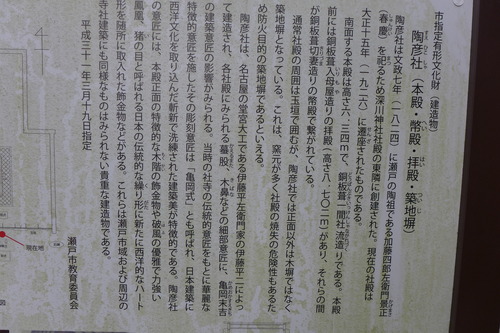 市指定有形文化財（建造物）
陶彦社（本殿・幣殿・拝殿・築地塀）
陶彦社は文政七年（一八二四）に瀬戸の陶祖である加藤四郎左衛門景正
（春慶）を祀るため深川神社社殿の東隣に創建された。現在の社殿は
大正十五年（一九二六）に遷座されたものである。
南面する本殿は高さ六、三四ｍで、銅板葺一間社流造りである。本殿
前には銅板葺入母屋造りの拝殿（高さ八、七〇三ｍ）があり、それらの間
が銅板葺切妻造りの幣殿で繋がれている。
通常社殿の周囲は玉垣で囲むが、陶彦社では正面以外は木塀ではなく
築地塀となっている。これは、窯元が多く社殿の焼失の危険性もあるた
め防火目的の築地塀であるといえる。
陶彦社は、名古屋の堂宮大工である伊藤平左衛門家の伊藤平二によっ
て建造され、各社殿にみられる蟇股、木鼻などの細部意匠に、亀岡末吉
の建築意匠の影響がみられる。当時の社寺の伝統的意匠をもとに華麗な
特徴的意匠を施したその彫刻意匠は「亀岡式」とも呼ばれ、日本建築に
西洋文化を取り込んだ斬新で洗練された建築美が特徴的である。陶彦社
の意匠には、本殿正面の特徴的な木階の飾金物や破風の優雅で力強い
鳳凰、猪の目と呼ばれる日本の伝統的な繰り形に新たに西洋的なハート
形を随所に取入れた飾金物などがある。これらは瀬戸市域および周辺の
寺社建築にも同様なものはみられない貴重な建造物である。
平成三十一年三月十九日指定
瀬戸市教育委員会
現在地
図